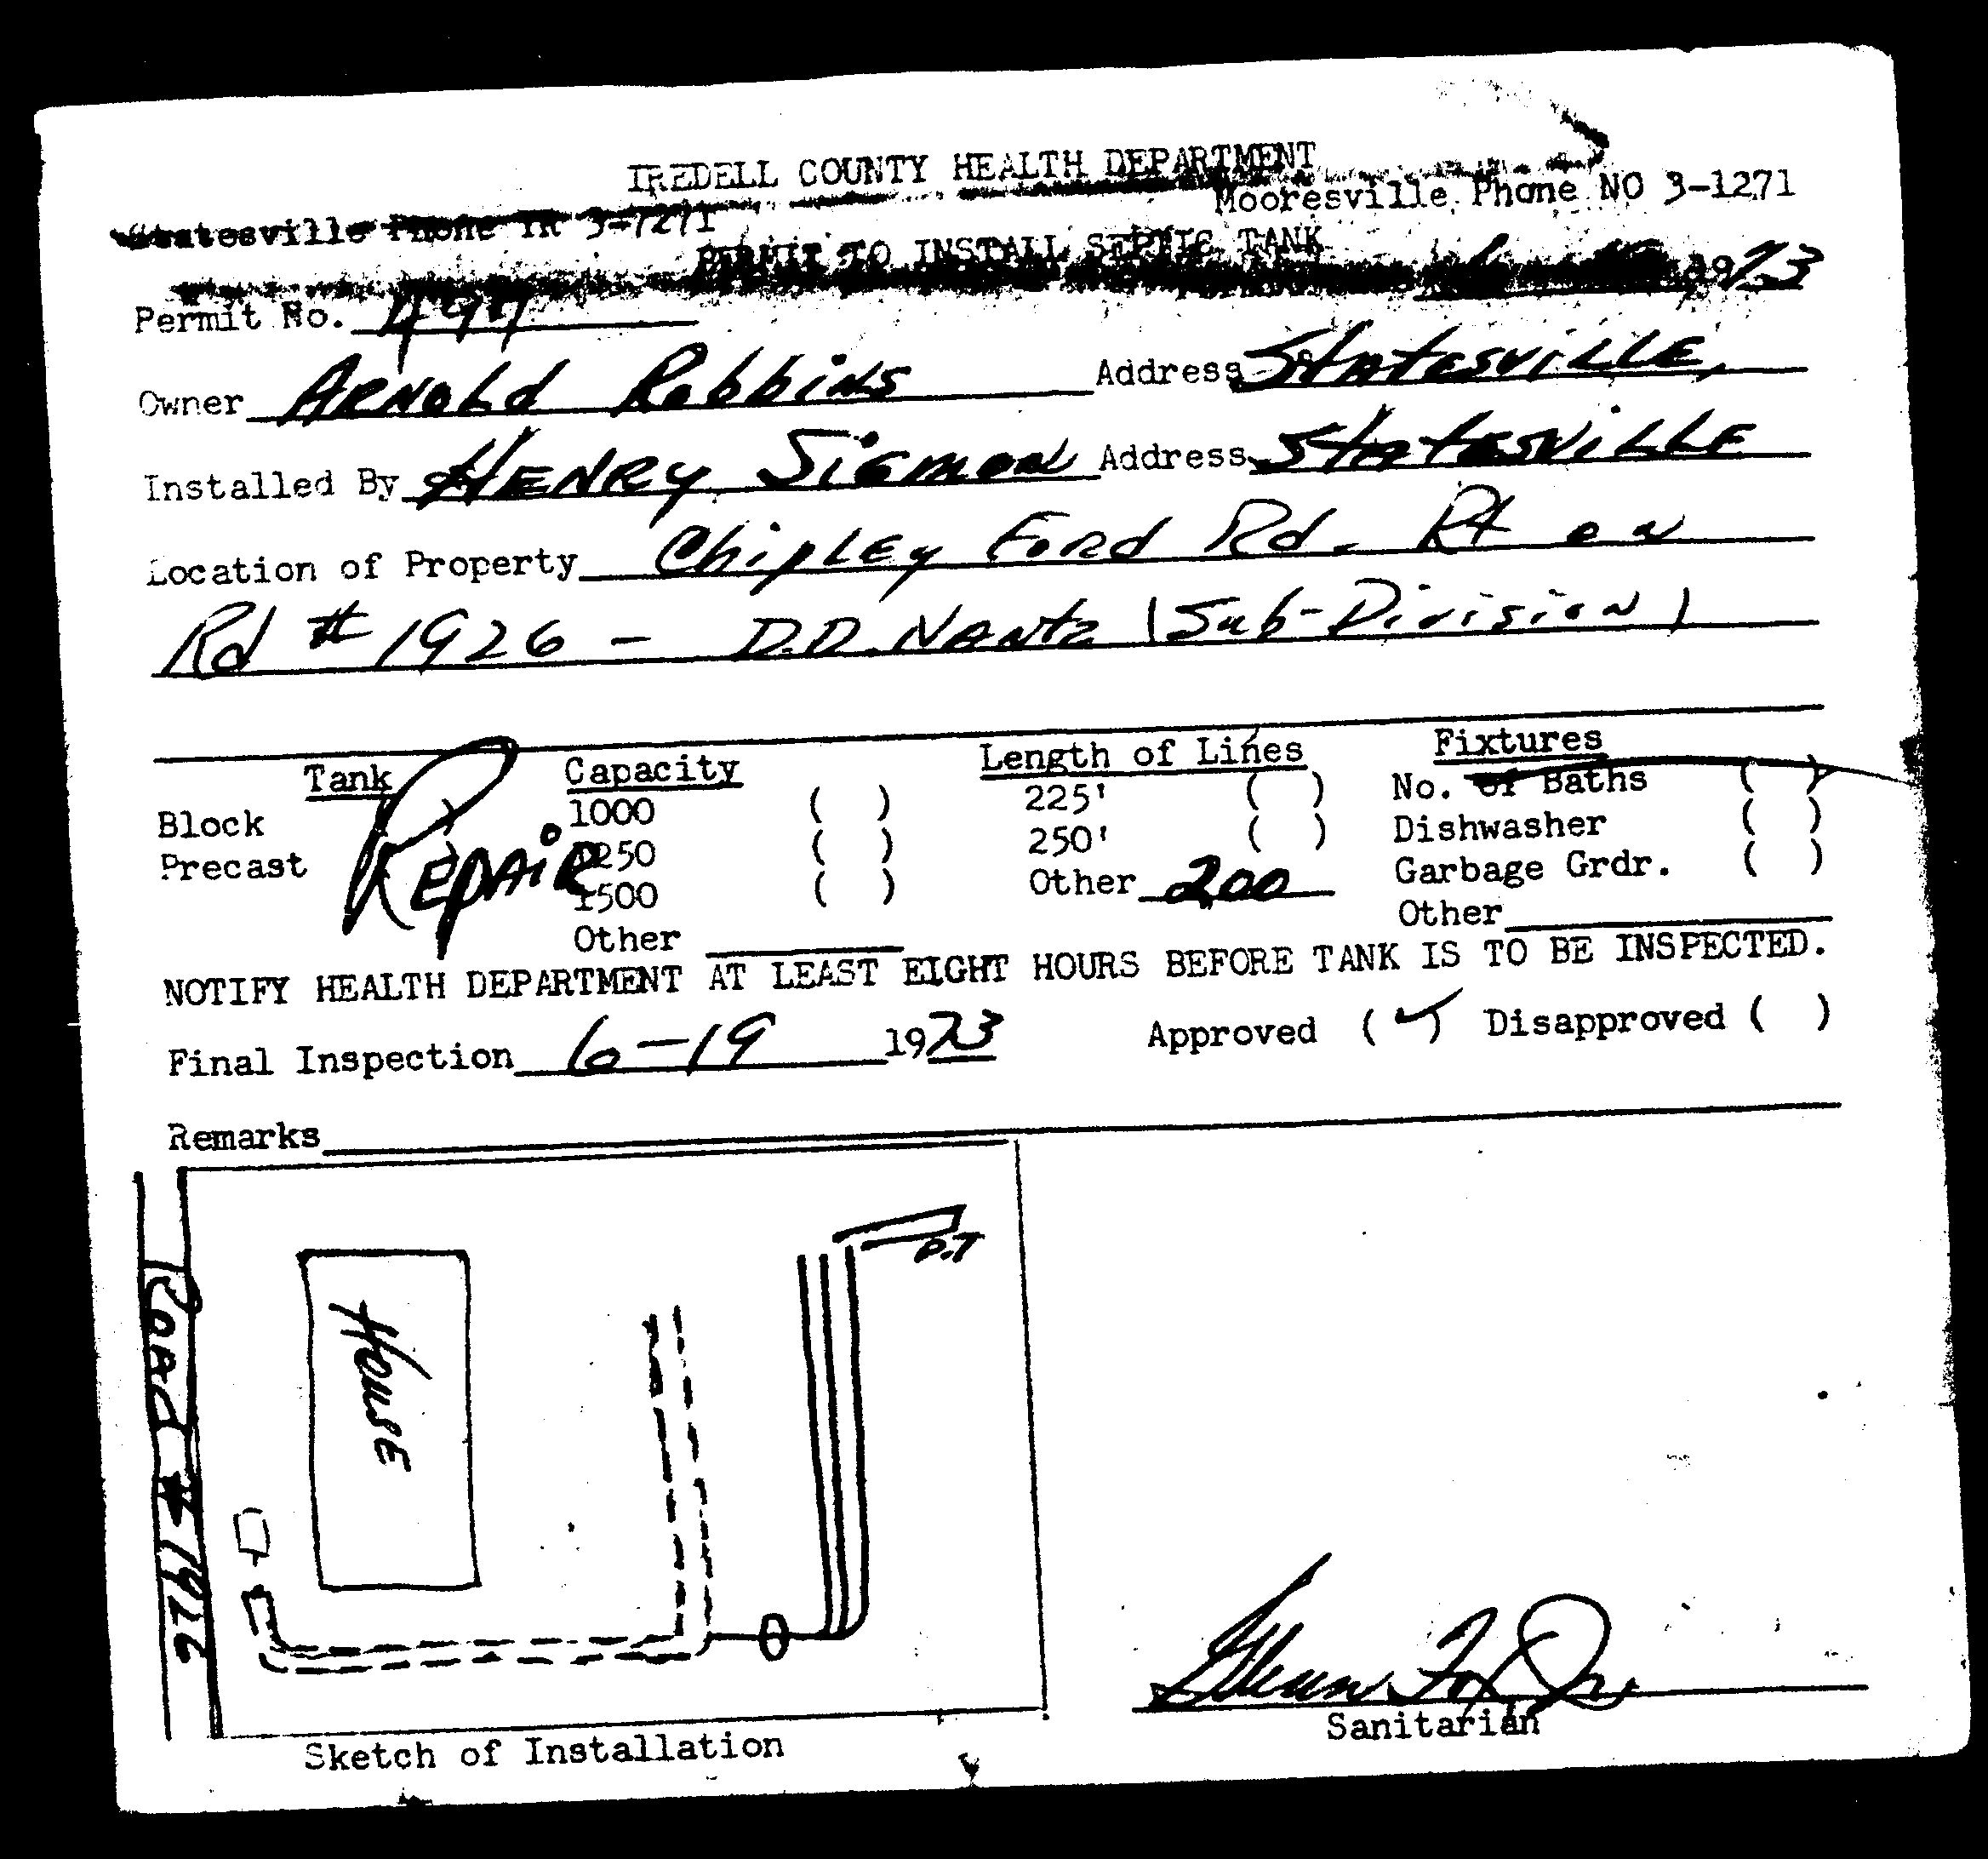 IREDELL COUNTY HEALTH DEPARTMENT
Statesville Phone TR 3-7271 Mooresville Phone NO 3-1271
PERMIT TO INSTALL SEPTIC TANK
Permit No. 1973
Owner ARNOLd Robbins Address Statesville,
Installed By HENRY Sigmon Address Statesville
Location of Property Chipley Ford Rd. Rt on
Rd # 1926 - D.D. Nantz (Sub-Division)
Tank Capacity Length of Lines Fixtures
Block ( ) 1000 ( ) 225' ( ) No. of Baths ( )
Precast ( ) 1250 ( ) 250' ( ) Dishwasher ( )
Repair 1500 ( ) Other 200 Garbage Grdr. ( )
Other Other
NOTIFY HEALTH DEPARTMENT AT LEAST EIGHT HOURS BEFORE TANK IS TO BE INSPECTED.
Final Inspection 6-19 1973 Approved (✓) Disapproved ( )
Remarks
P.T
House
Road # 1926
Sanitarian
Sketch of Installation